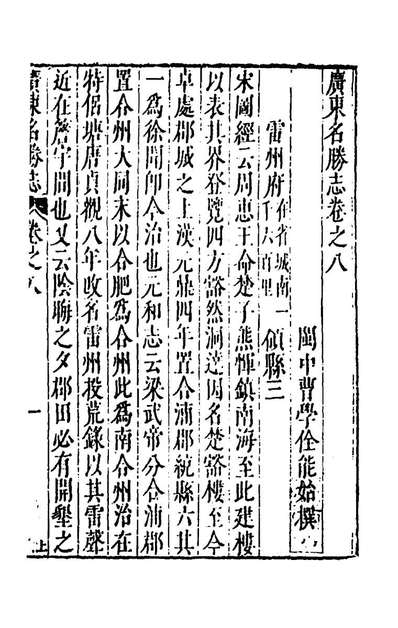 廣東名勝志卷之八
閩中曹學佺能始撰
雷州府在省城南一千六百里領縣三
宋圖經云周惠王命楚子熊惲鎮南海至此建樓
以表其界登覽四方豁然洞達因名楚豁樓至今
卓處郡城之上漢元鼎四年置合浦郡統縣六其
一爲徐聞卽今治也元和志云梁武帝分合浦郡
置合州大同末以合肥爲合州此爲南合州治在
特侶塘唐貞觀八年改名雷州投荒錄以其雷聲
近在簷宇間也又云陰晦之夕郡田必有開墾之
廣東名勝志
卷之八
一
上